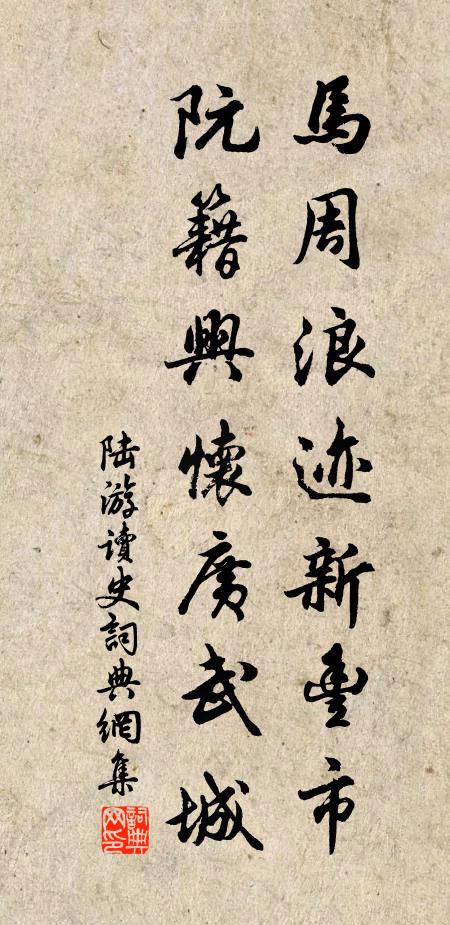 馬周浪迹新豐市
阮籍興懷廣武城
陆游讀史詞典網集
詞典网印